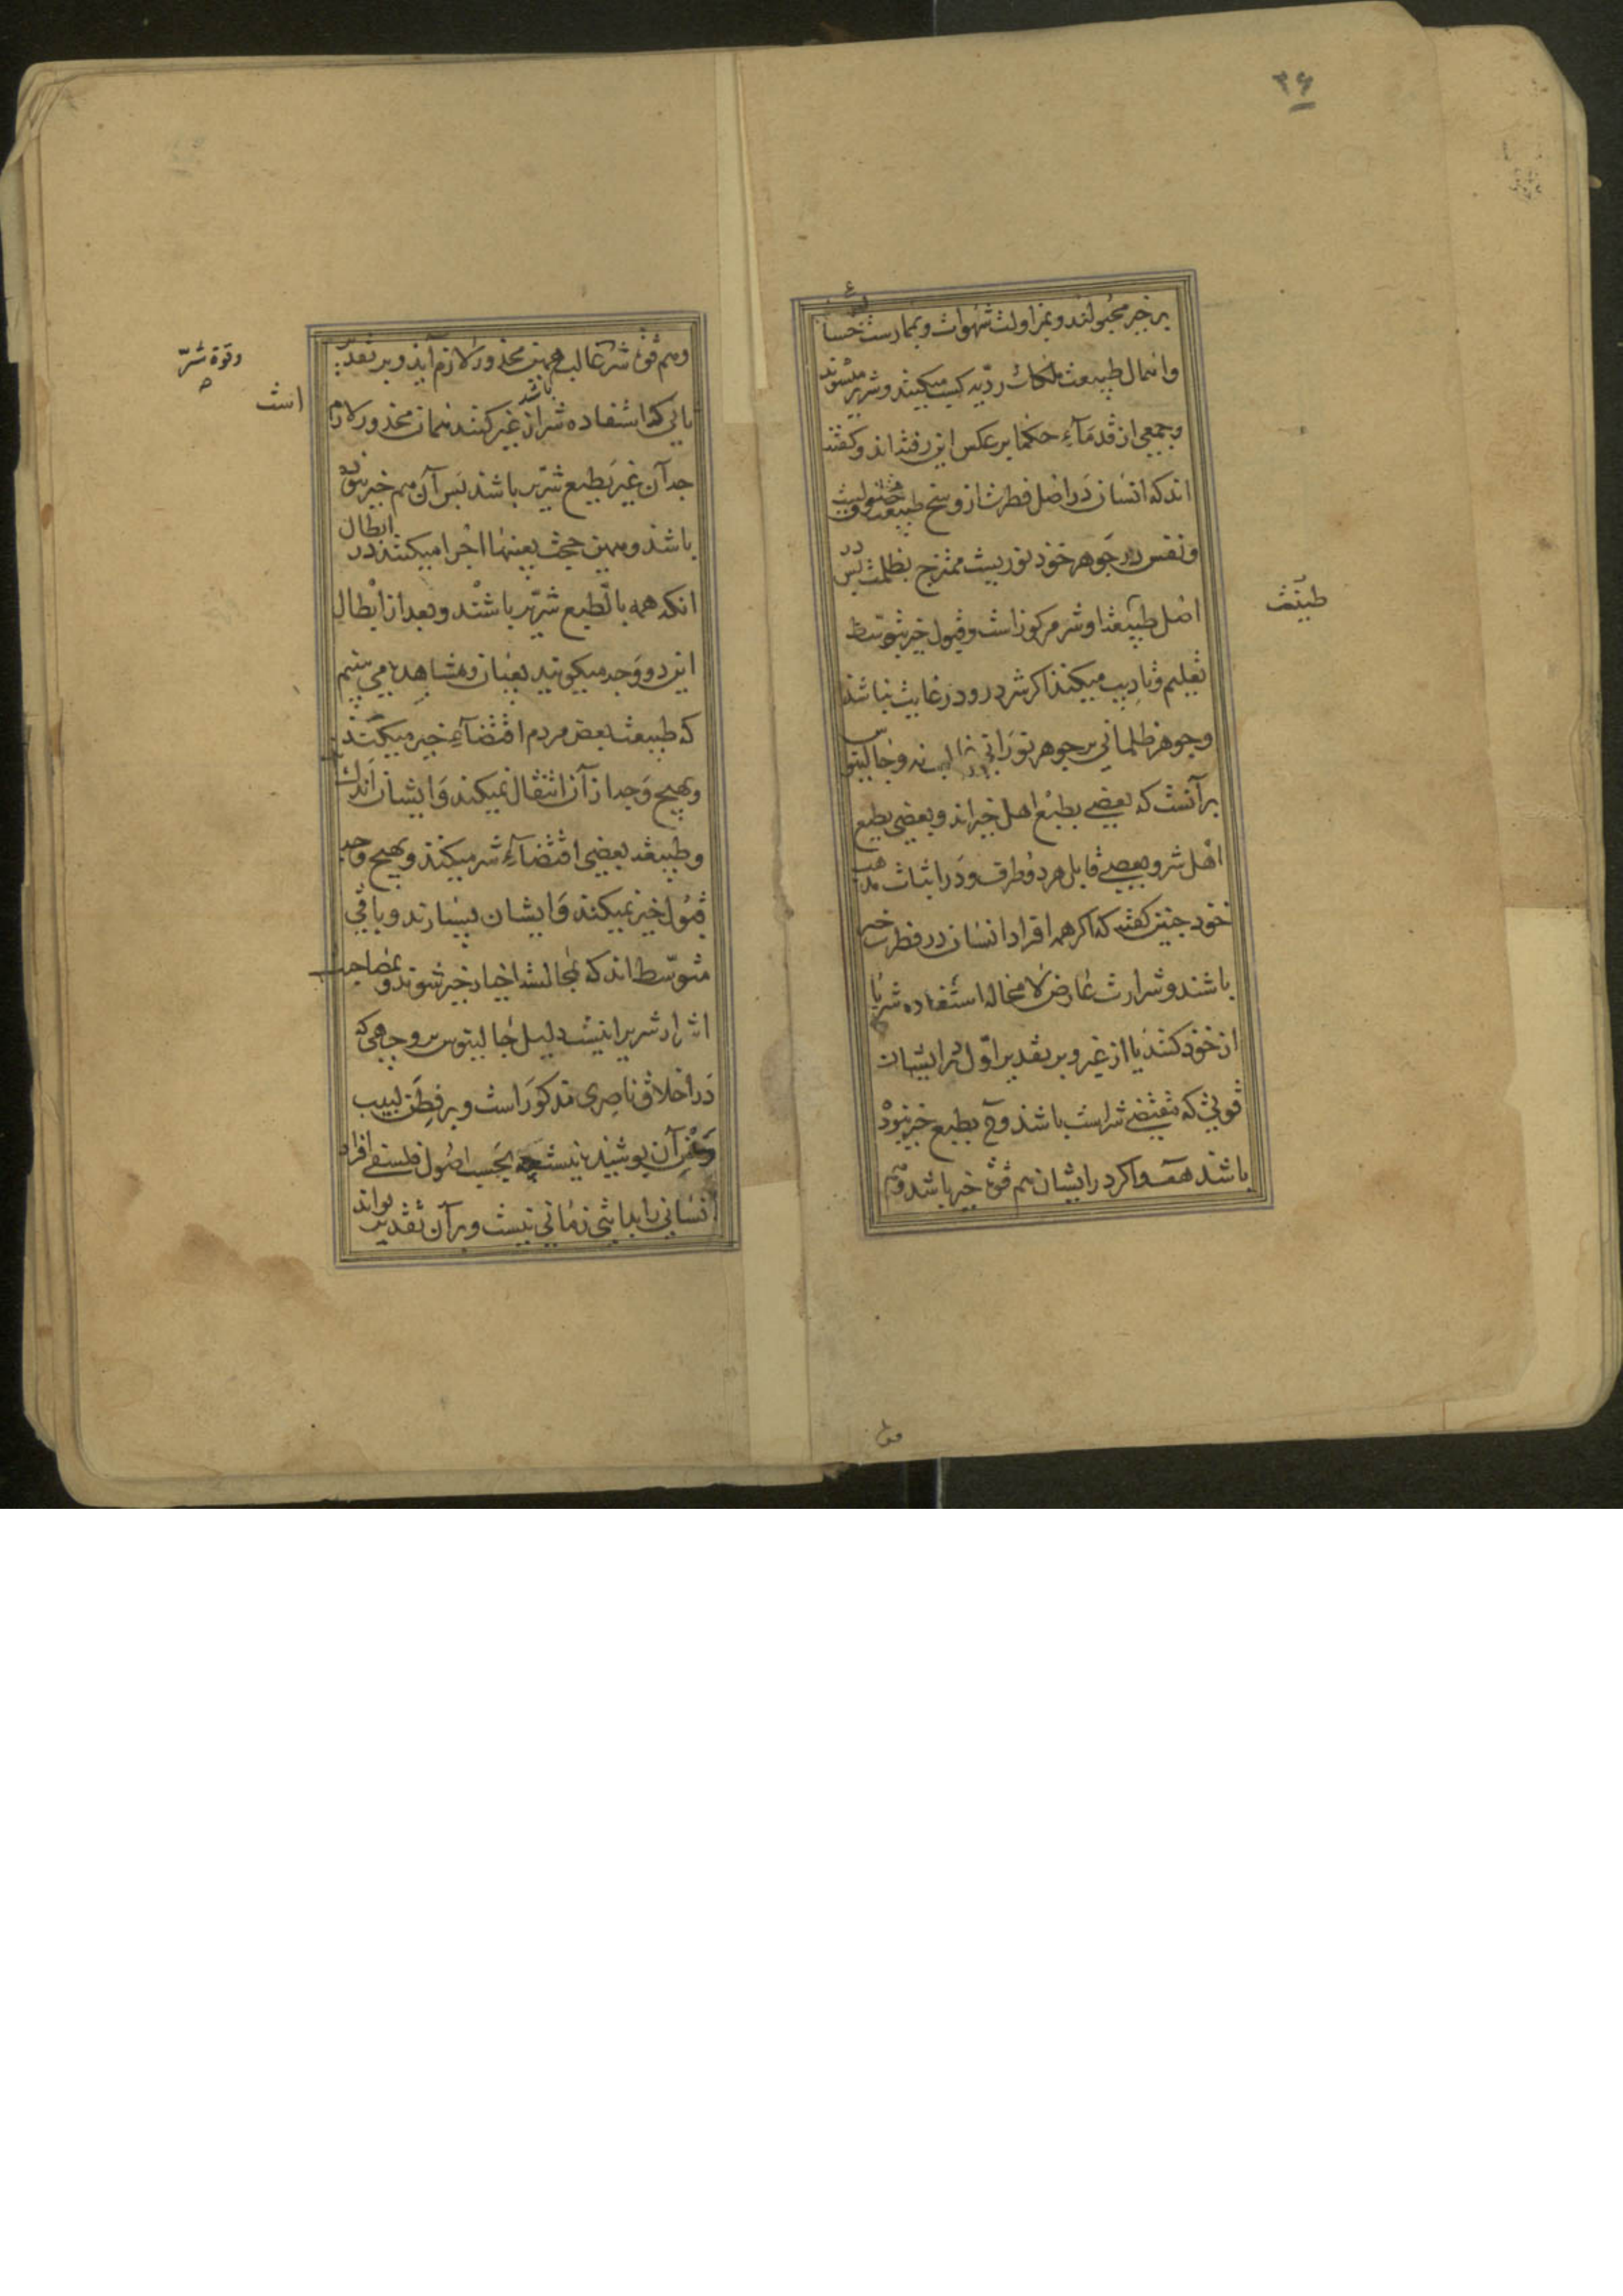 ۲۶
بر خیر مجبولند و بمزاولت شهوات و ممارست خسا
واهمال طبیعت ملکات ردیّه کسب میکنند و شریر میشوند
وجمعی از قدمآء حکما برعکس این رفته اند و گفته
اند که انسان در اصل فطرت از وسخ طبیعت مخلوقیت
و نفس در جوهر خود نوریست ممتزج بظلمت پس در
طینت
اصل طبیعت او شر مرکوز است و قبول خیر بتوسط
تعلیم و تادیب میکند اگر شر درو در غایت نباشد
وجوهر ظلمانی بر جوهر نورانی غالب نه و جالینوس
برآنست که بعضی بطبع اهل خیراند و بعضی بطبع
اهل شر و بعضی قابل هر دو طرف و در اثبات مذهب
خود چنین گفته که اگر همه افراد انسان در فطرت خیر
باشند و شرارت عارض لامحاله استفاده شر یا
از خود کنند یا از غیر و بر تقدیر اوّل در ایشان
قوتی که مقتضی شرست باشد وح بطبع خیر نبوده
باشند هف واکر در ایشان هم قوة خیر باشد و هم
وهم قوة شر غالب همین محذور لازم آید و بر تقدیر
وقوة شرّ
است
ثانی که استفاده شر از غیر کنند همان محذور لازم
باشد
چه آن غیر بطبع شریر باشد پس آن هم خیر نبوده
باشد و همین حجت بعینها اجرا میکنند در ابطال
انکه همه بالطبع شریر باشند و بعد از ابطال
این دو وجه میگویند بعیان و مشاهده می بینیم
که طبیعت بعض مردم اقتضآء خیر میکند
و بهیچ وجه از آن انتقال نمیکند و ایشان اندک
و طبیعت بعضی اقتضآء شر میکند و بهیچ وجه
قبول خیر نمیکند و ایشان بسیارند و باقی
متوسط اند که بمجالست اخیار خیر شوند و بمصاحبت
اشرار شریر اینست دلیل جالینوس بر وجهی که
در اخلاق ناصری مذکور است و بر فطن لبیب
آن پوشیده نیست چه بحسب اصول فلسفی افراد
انسانی را بدایتی زمانی نیست و بر آن تقدیر تواند